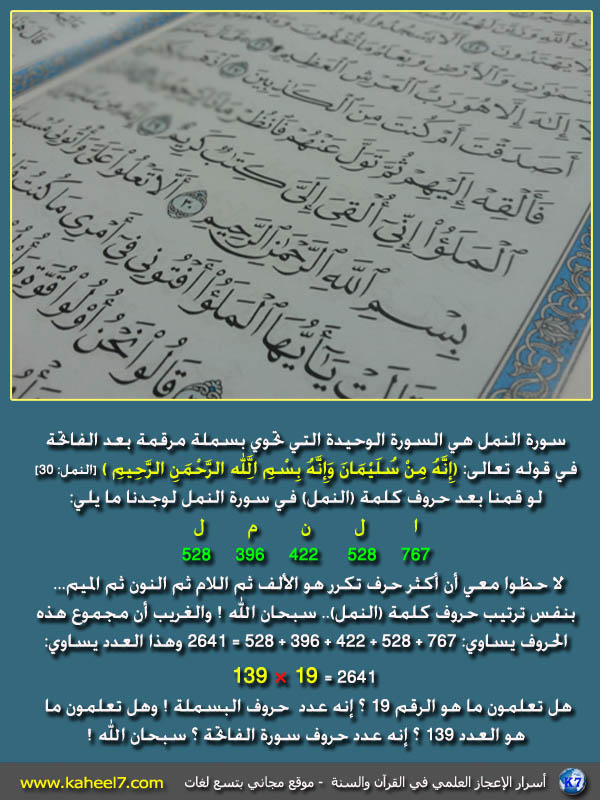 لَا يَهْتَدُونَ ٢٤ أَلَّا يَسْجُدُوا۟
وَٱلْأَرْضِ وَيَعْلَمُ مَا تُخْفُونَ
إِلَٰهَ إِلَّا هُوَ رَبُّ ٱلْعَرْشِ ٱلْعَظِيمِ ٢٦
أَصَدَقْتَ أَمْ كُنتَ مِنَ ٱلْكَٰذِبِينَ ٢٧
فَأَلْقِهْ إِلَيْهِمْ ثُمَّ تَوَلَّ عَنْهُمْ فَٱنظُرْ
ٱلْمَلَؤُا۟ إِنِّىٓ أُلْقِىَ إِلَىَّ كِتَٰبٌ كَرِيمٌ ٢٩
بِسْمِ ٱللَّهِ ٱلرَّحْمَٰنِ ٱلرَّحِيمِ ٣٠ أَلَّا تَعْلُوا۟ عَلَىَّ وَأْتُونِى
قَالَتْ يَٰٓأَيُّهَا ٱلْمَلَؤُا۟ أَفْتُونِى فِىٓ أَمْرِى مَا كُنتُ
قَالُوا۟ نَحْنُ أُو۟لُوا۟ قُوَّةٍ
سورة النمل هي السورة الوحيدة التي تحوي بسملة مرقمة بعد الفاتحة
في قوله تعالى: (إِنَّهُ مِنْ سُلَيْمَانَ وَإِنَّهُ بِسْمِ اللَّهِ الرَّحْمَنِ الرَّحِيمِ ) [النمل: 30]
لو قمنا بعد حروف كلمة (النمل) في سورة النمل لوجدنا ما يلي:
ا ل ن م ل
767 528 422 396 528
لا حظوا معي أن أكثر حرف تكرر هو الألف ثم اللام ثم النون ثم الميم...
بنفس ترتيب حروف كلمة (النمل).. سبحان الله ! والغريب أن مجموع هذه
الحروف يساوي: 767 + 528 + 422 + 396 + 528 = 2641 وهذا العدد يساوي:
2641 = 19 × 139
هل تعلمون ما هو الرقم 19 ؟ إنه عدد حروف البسملة ! وهل تعلمون ما
هو العدد 139 ؟ إنه عدد حروف سورة الفاتحة ؟ سبحان الله !
K7 أسرار الإعجاز العلمي في القرآن والسنة - موقع مجاني بتسع لغات www.kaheel7.com